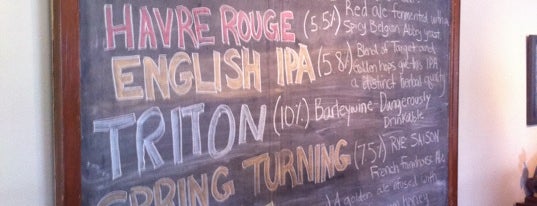 HAVRE ROUGE (5.5%) Red ale fermented with a
Spicy Belgian Abbey yeast
ENGLISH IPA (5.8%) Blend of Target and
hops give this IPA
a distinct herbal quality
TRITON (10%) Barleywine - Dangerously
Drinkable
SPRING TURNING (7.5%) RYE SAISON
French farmhouse Ale
A golden ale infused with
honey